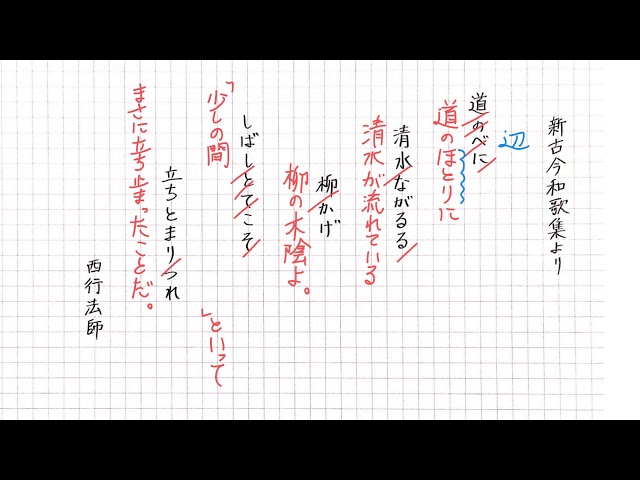 新古今和歌集より
辺
道のべに
道のほとりに
清水ながるる
清水が流れている
柳かげ
柳の木陰よ。
しばしとてこそ
「少しの間
」といって
立ちとまりつれ
まさに立ち止まったことだ。
西行法師